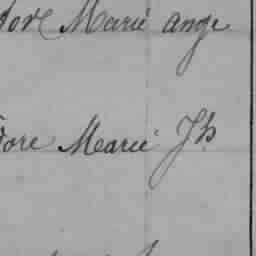 dore Marie ange
dore Marie Jh